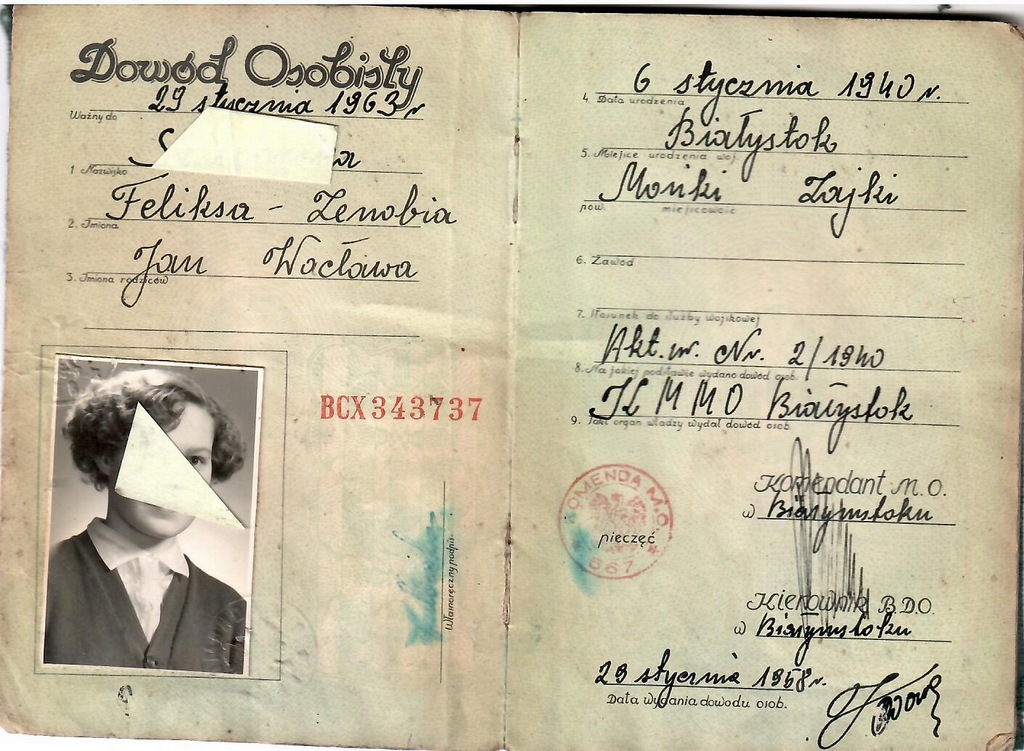 Dowód Osobisty
29 stycznia 1963 r
Ważny do
1. Nazwisko
Feliksa - Zenobia
2. Imiona
Jan Wacława
3. Imiona rodziców
BCX343737
Własnoręczny podpis
6 stycznia 1940 r.
4. Data urodzenia
Białystok
5. Miejsce urodzenia woj.
Mońki Zajki
pow. miejscowość
6. Zawód
7. Stosunek do służby wojskowej
Akt. ur. Nr. 2/1940
8. Na jakiej podstawie wydano dowód osob.
MMO Białystok
9. Jaki organ władzy wydał dowód osob.
KOMENDA M.O.
pieczęć
667
Komendant M.O.
w Białymstoku
Kierownik B.D.O.
w Białymstoku
29 stycznia 1958 r.
Data wydania dowodu osob.